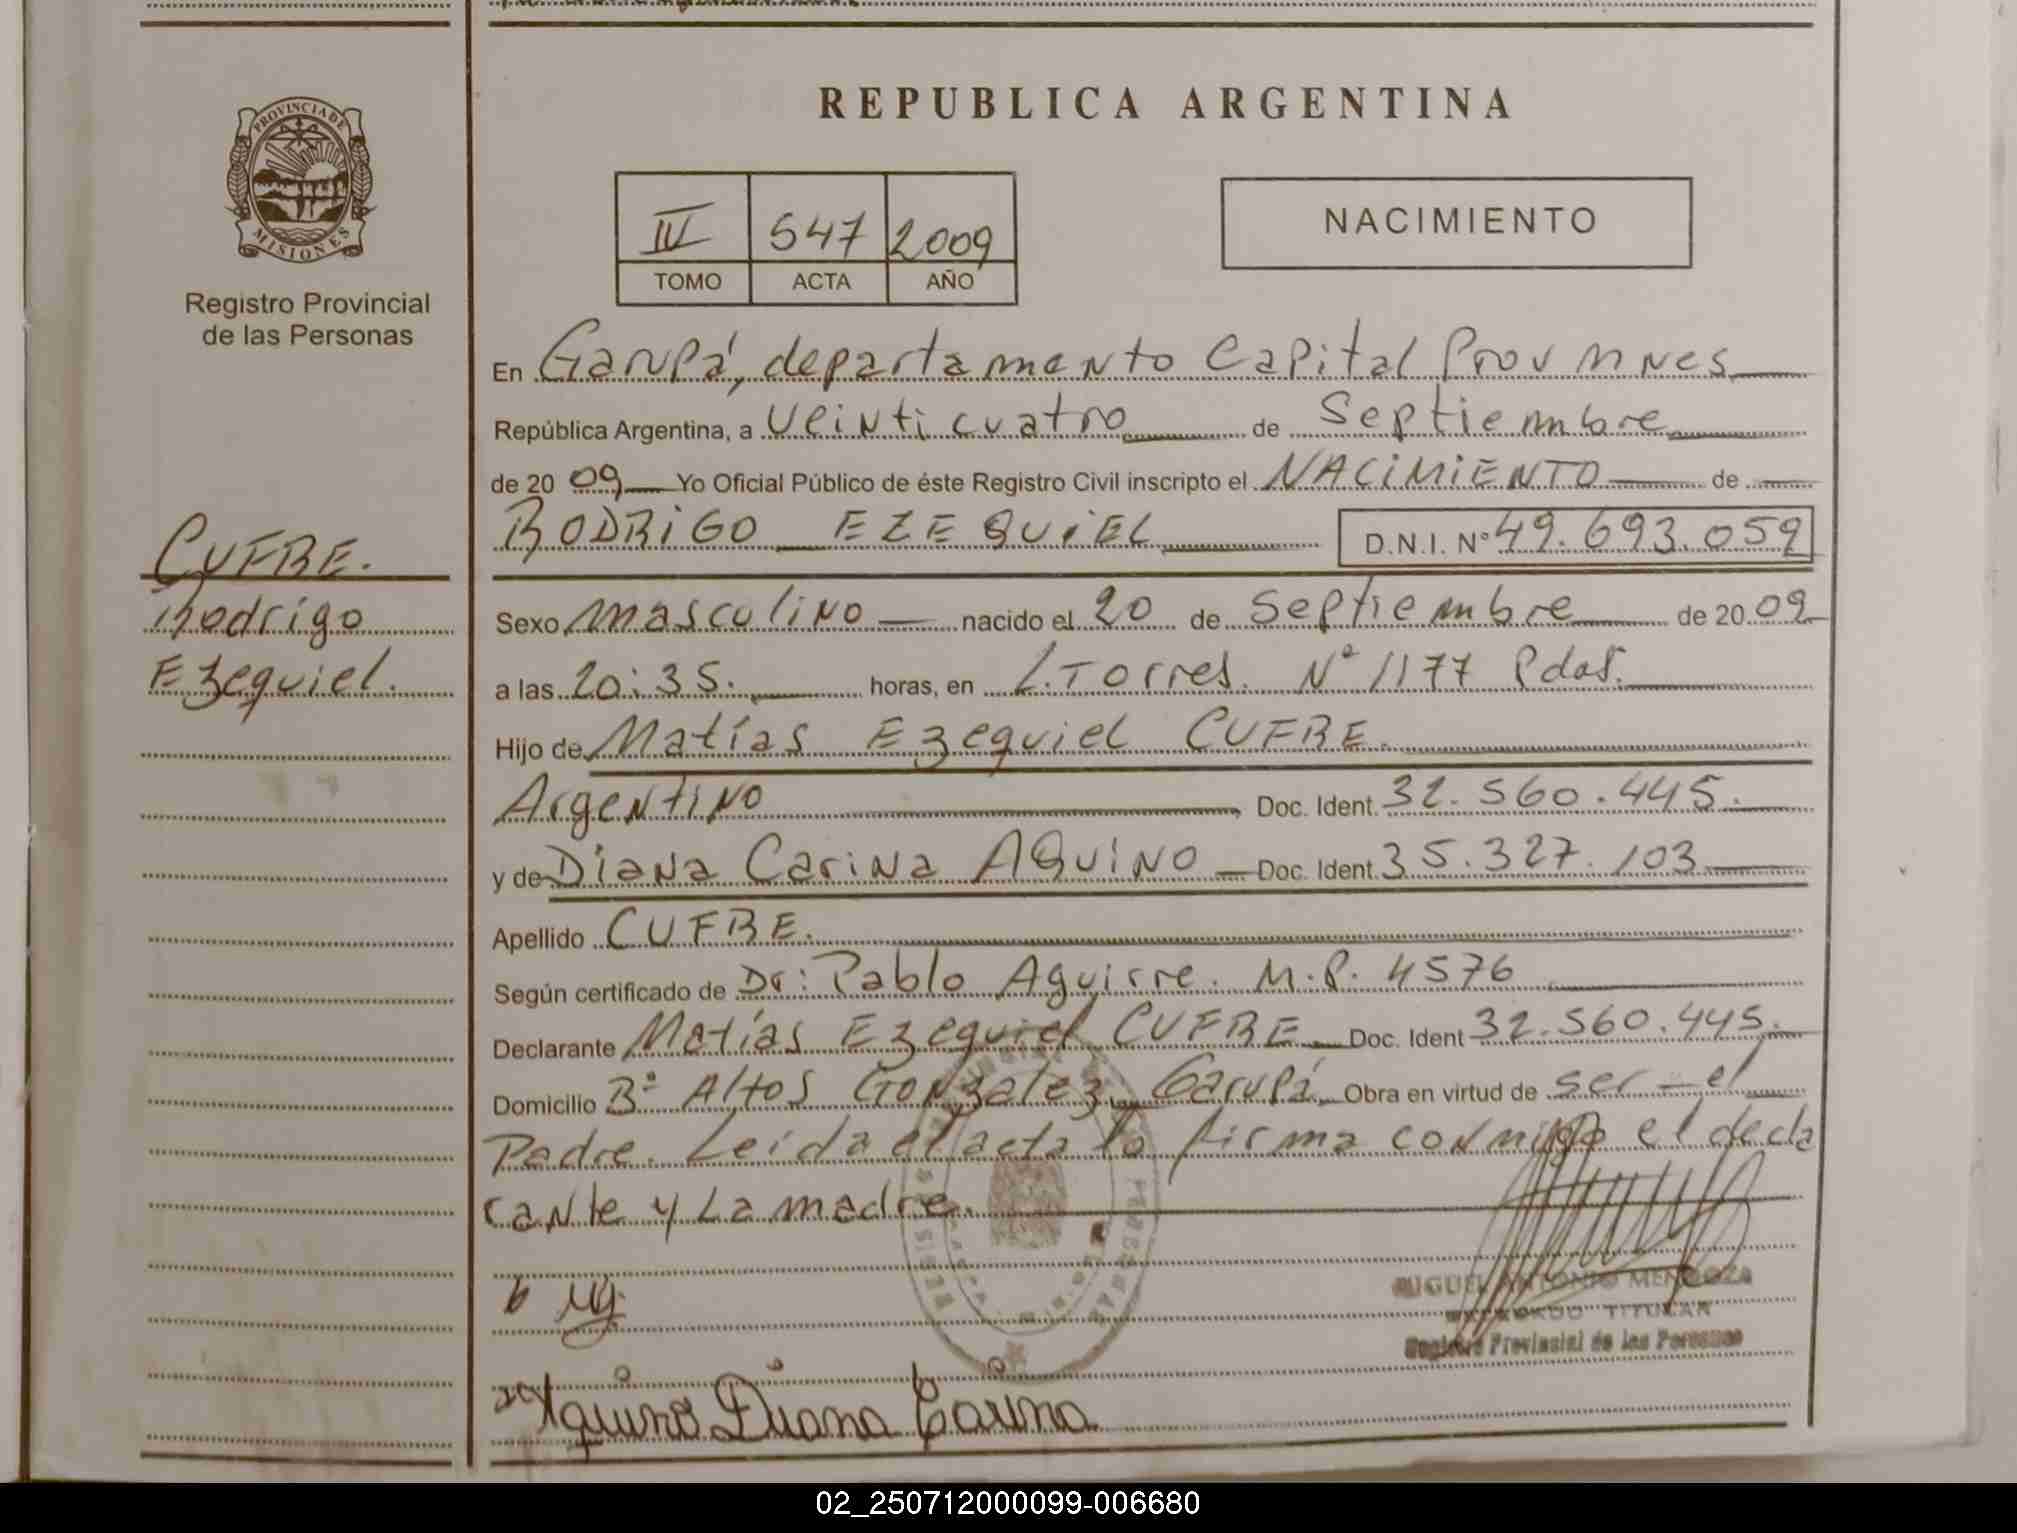 REPUBLICA ARGENTINA
PROVINCIA DE
MISIONES
Registro Provincial
de las Personas
IV 547 2009
TOMO ACTA AÑO
NACIMIENTO
En Garupá, departamento Capital Prov Mnes
República Argentina, a Veinticuatro de Septiembre
de 20 09 Yo Oficial Público de éste Registro Civil inscripto el NACIMIENTO de
RODRIGO EZEQUIEL D.N.I. N° 49.693.059
CUFRE.
Rodrigo
Ezequiel.
Sexo masculino nacido el 20 de Septiembre de 20 09
a las 20:35. horas, en L. Torres. N° 1177 Pdas.
Hijo de Matías Ezequiel CUFRE.
Argentino Doc. Ident. 32.560.445.
y de Diana Carina AQUINO Doc. Ident. 35.327.103
Apellido CUFRE.
Según certificado de Dr: Pablo Aguirre. M.P. 4576
Declarante Matías Ezequiel CUFRE Doc. Ident 32.560.445.
Domicilio B° Altos Gonzalez, Garupá, Obra en virtud de ser el
Padre. Leída el acta la firma conmigo el decla
rante y La madre.
MIGUEL ANTONIO MENDOZA
TITULAR
Registro Provincial de las Personas
Aquino Diana Carina
02_250712000099-006680